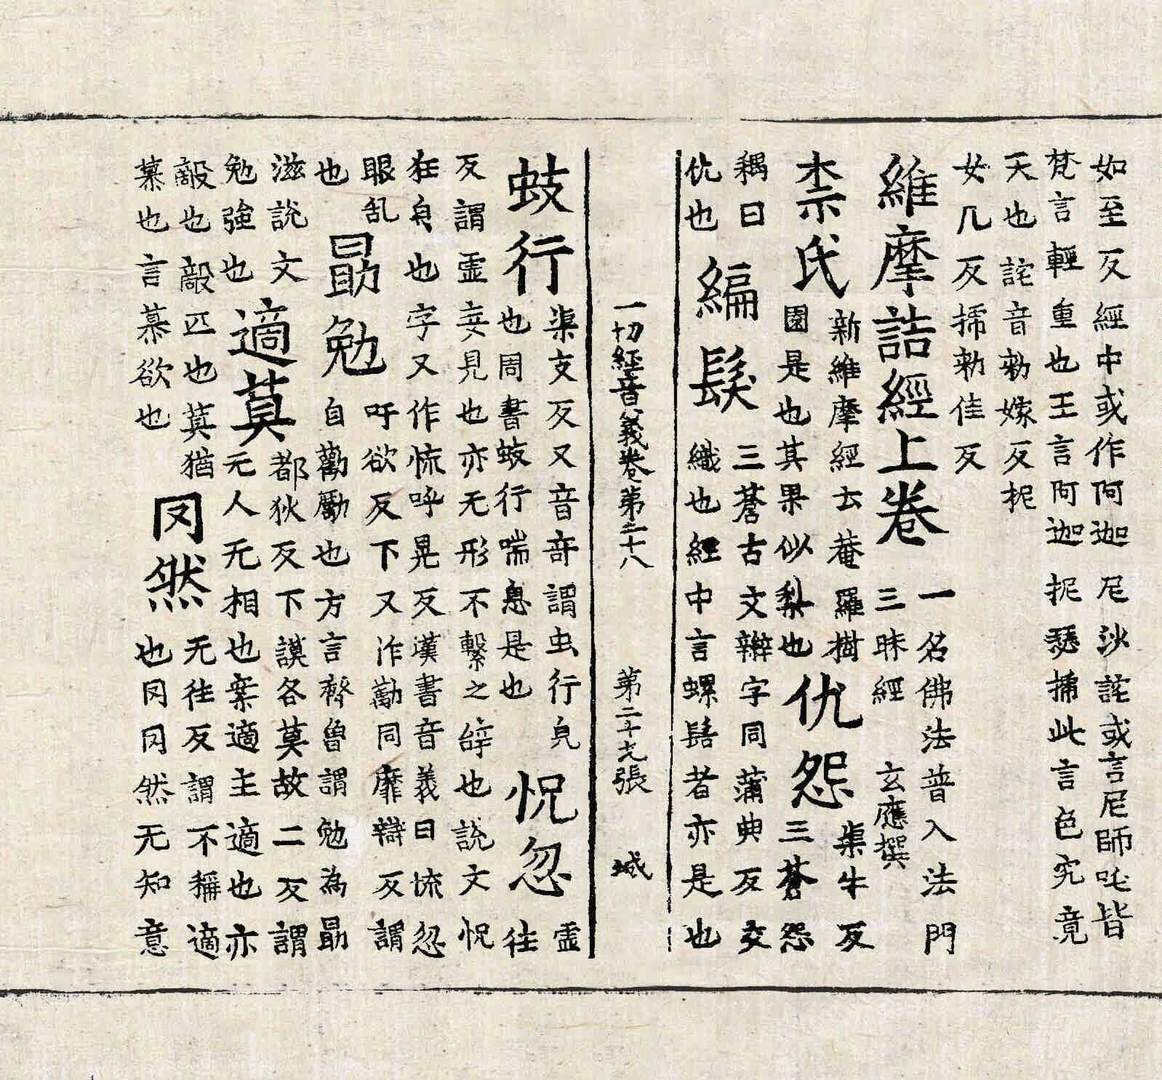 如至反經中或作阿迦尼沙詫或言尼師吒皆
梵言輕重也王言阿迦抳瑟搋此言色究竟
天也詫音勑嫁反抳
女几反搋勑佳反
維摩詰經上卷
一名佛法普入法門
三昧經 玄應撰
柰氏
新維摩經云菴羅樹
園是也其果似梨也
仇怨
渠牛反
三蒼怨
耦曰
仇也
編髮
三蒼古文辮字同蒲典反交
織也經中言螺髻者亦是也
一切經音義卷第二十八 第二十九張 城
蚑行
渠支反又音奇謂虫行皃
也周書蚑行喘息是也
怳忽
虛
往
反謂虛妄見也亦无形不繫之辝也說文怳
狂皃也字又作恍呼晃反漢書音義曰恍忽
眼乱
也
勗勉
吁欲反下又作勱同靡辯反謂
自勸勵也方言齊魯謂勉為勗
滋說文
勉強也
適莫
都狄反下謨各莫故二反謂
无人无相也案適主適也亦
敵也敵匹也莫猶
慕也言慕欲也
罔然
无往反謂不稱適
也罔罔然无知意